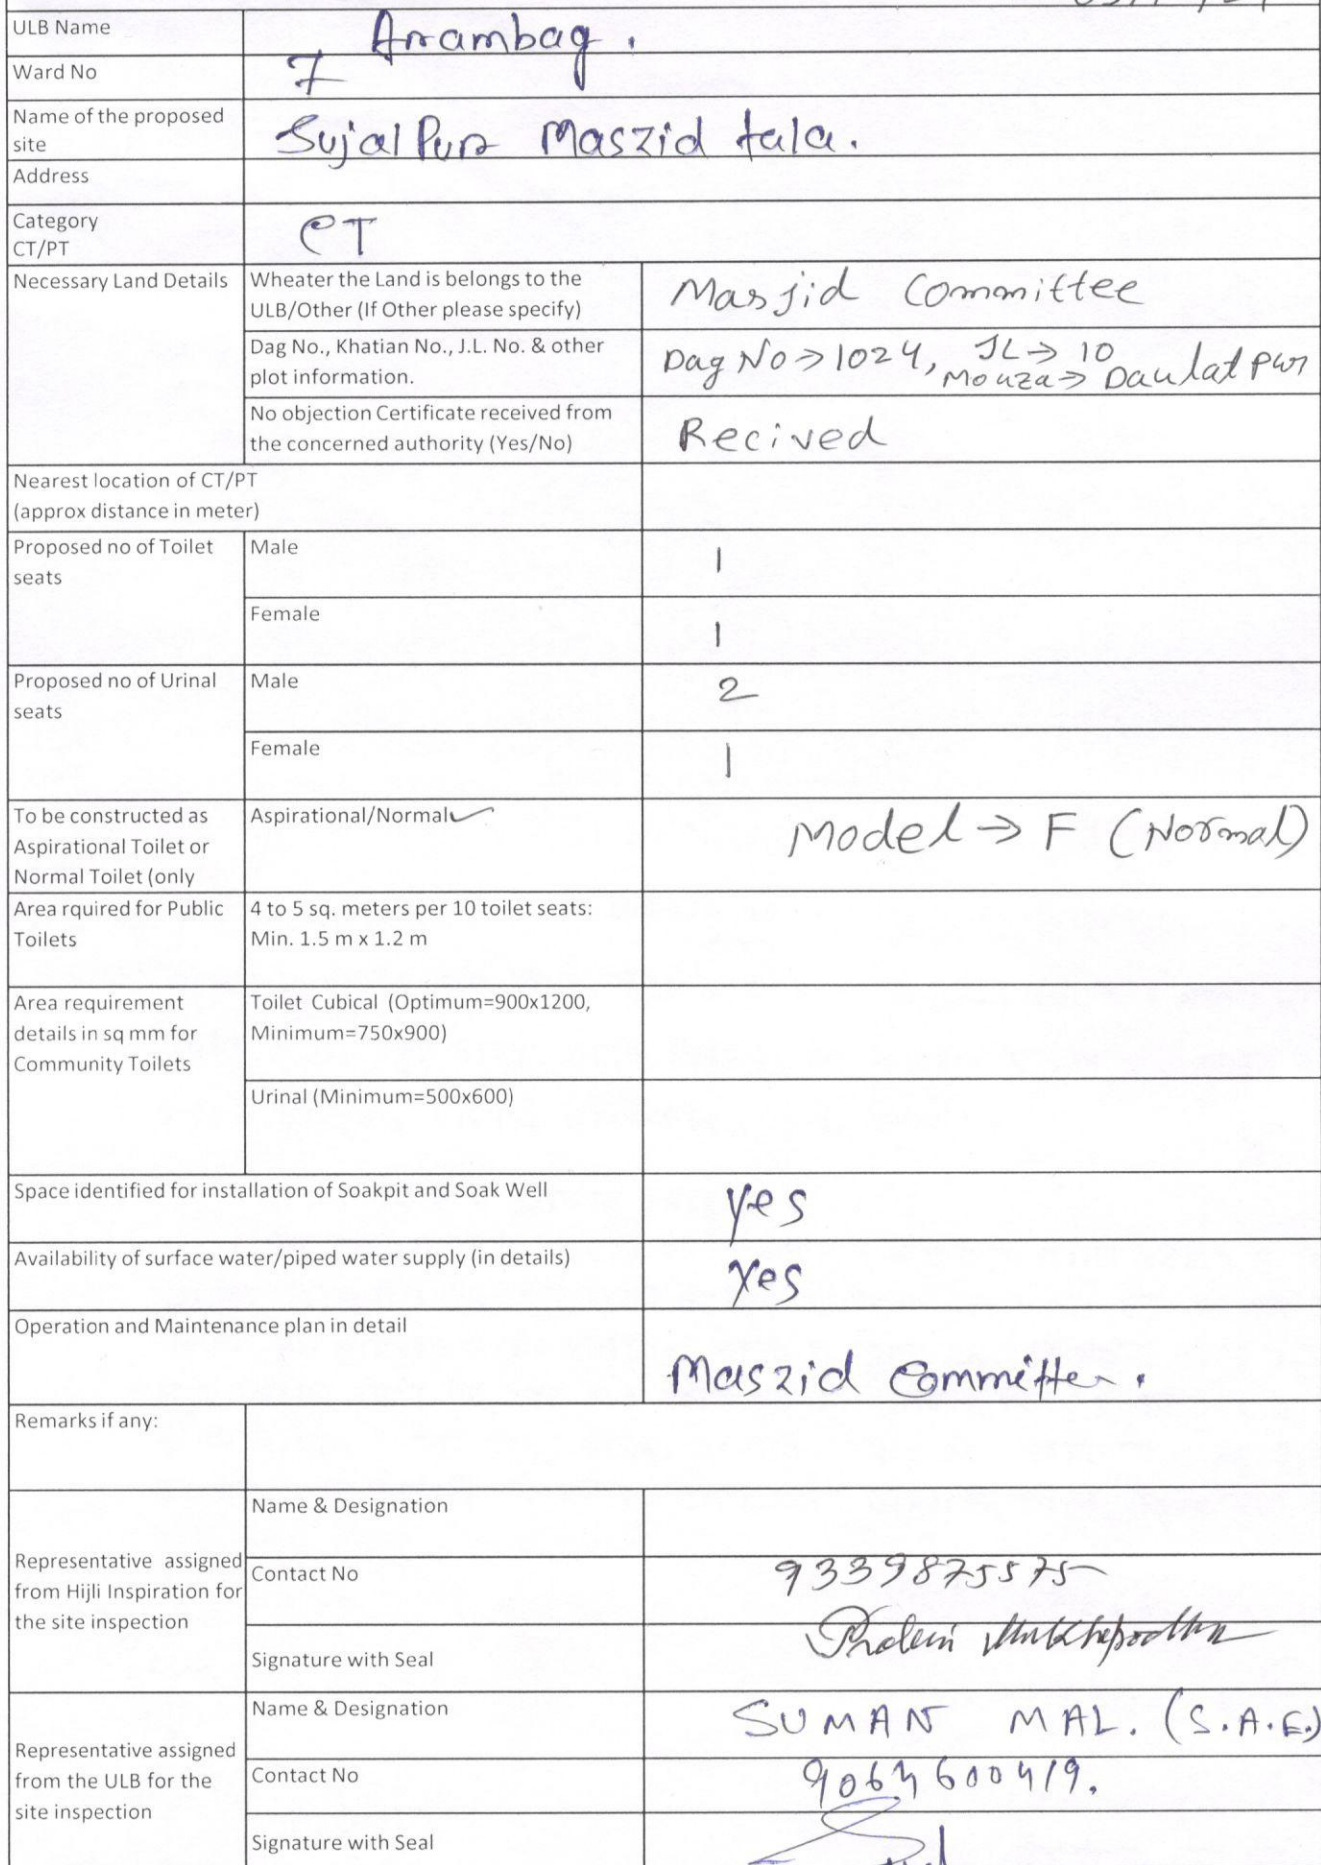 ULB Name Arambag.
Ward No 7
Name of the proposed
site Sujalpur Maszid tala.
Address
Category
CT/PT CT
Necessary Land Details Wheater the Land is belongs to the
ULB/Other (If Other please specify) Masjid Committee
Dag No., Khatian No., J.L. No. & other
plot information. Dag No → 1024, JL → 10
Mouza → Daulatpur
No objection Certificate received from
the concerned authority (Yes/No) Recived
Nearest location of CT/PT
(approx distance in meter)
Proposed no of Toilet
seats
Male 1
Female 1
Proposed no of Urinal
seats
Male 2
Female 1
To be constructed as
Aspirational Toilet or
Normal Toilet (only
Aspirational/Normal ✓ Model → F (Normal)
Area rquired for Public
Toilets
4 to 5 sq. meters per 10 toilet seats:
Min. 1.5 m x 1.2 m
Area requirement
details in sq mm for
Community Toilets
Toilet Cubical (Optimum=900x1200,
Minimum=750x900)
Urinal (Minimum=500x600)
Space identified for installation of Soakpit and Soak Well yes
Availability of surface water/piped water supply (in details) Yes
Operation and Maintenance plan in detail
Maszid Committee.
Remarks if any:
Representative assigned
from Hijli Inspiration for
the site inspection
Name & Designation
Contact No 9339875575
Signature with Seal
Representative assigned
from the ULB for the
site inspection
Name & Designation SUMAN MAL. (S.A.E.)
Contact No 9064600419.
Signature with Seal